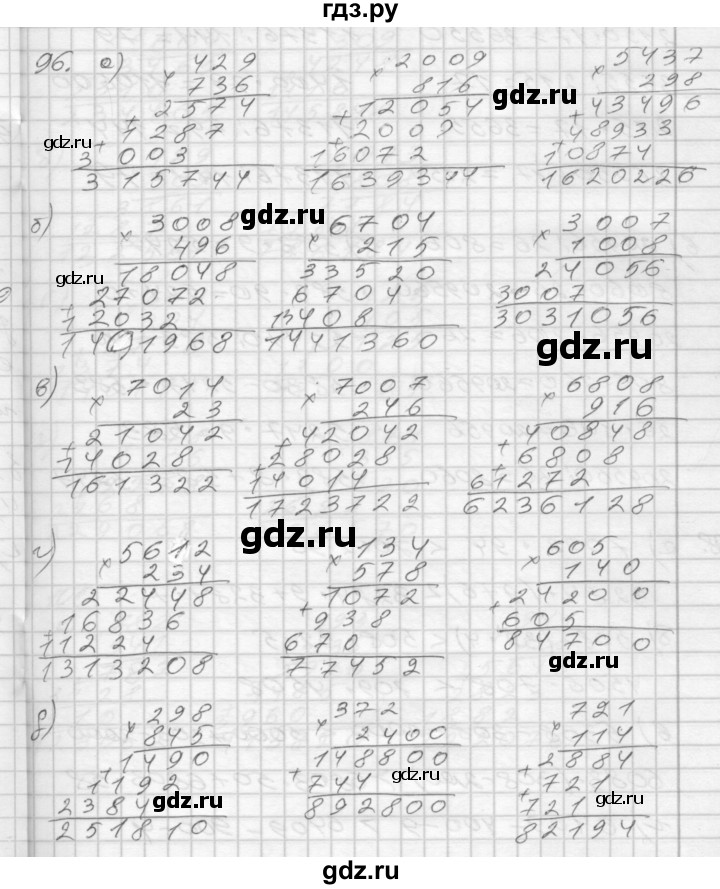 гдз.ру
96. а) 429 2009 5437
× 736 × 816 × 298
2574 12054 43496
+ 1287 + 2009 + 48933
3003 16072 10874
315744 1639344 1620226
gdz.ru gdz.ru gdz.ru
б) 3008 6704 3007
× 496 × 215 × 1008
18048 33520 24056
27072 6704 3007
12032 13408 3031056
1491968 1441360
gdz.ru gdz.ru gdz.ru
в) 7014 7007 6808
× 23 × 246 × 916
21042 42042 40848
+ 14028 + 28028 + 6808
161322 14014 61272
1723722 6236128
gdz.ru
г) 5612 134 605
× 234 × 578 × 140
22448 1072 24200
16836 + 938 + 605
11224 670 84700
1313208 77452
gdz.ru
д) 298 372 721
× 845 × 2400 × 114
1490 148800 2884
+ 1192 + 744 + 721
2384 892800 721
251810 82194
gdz.ru gdz.ru gdz.ru
gdz.ru